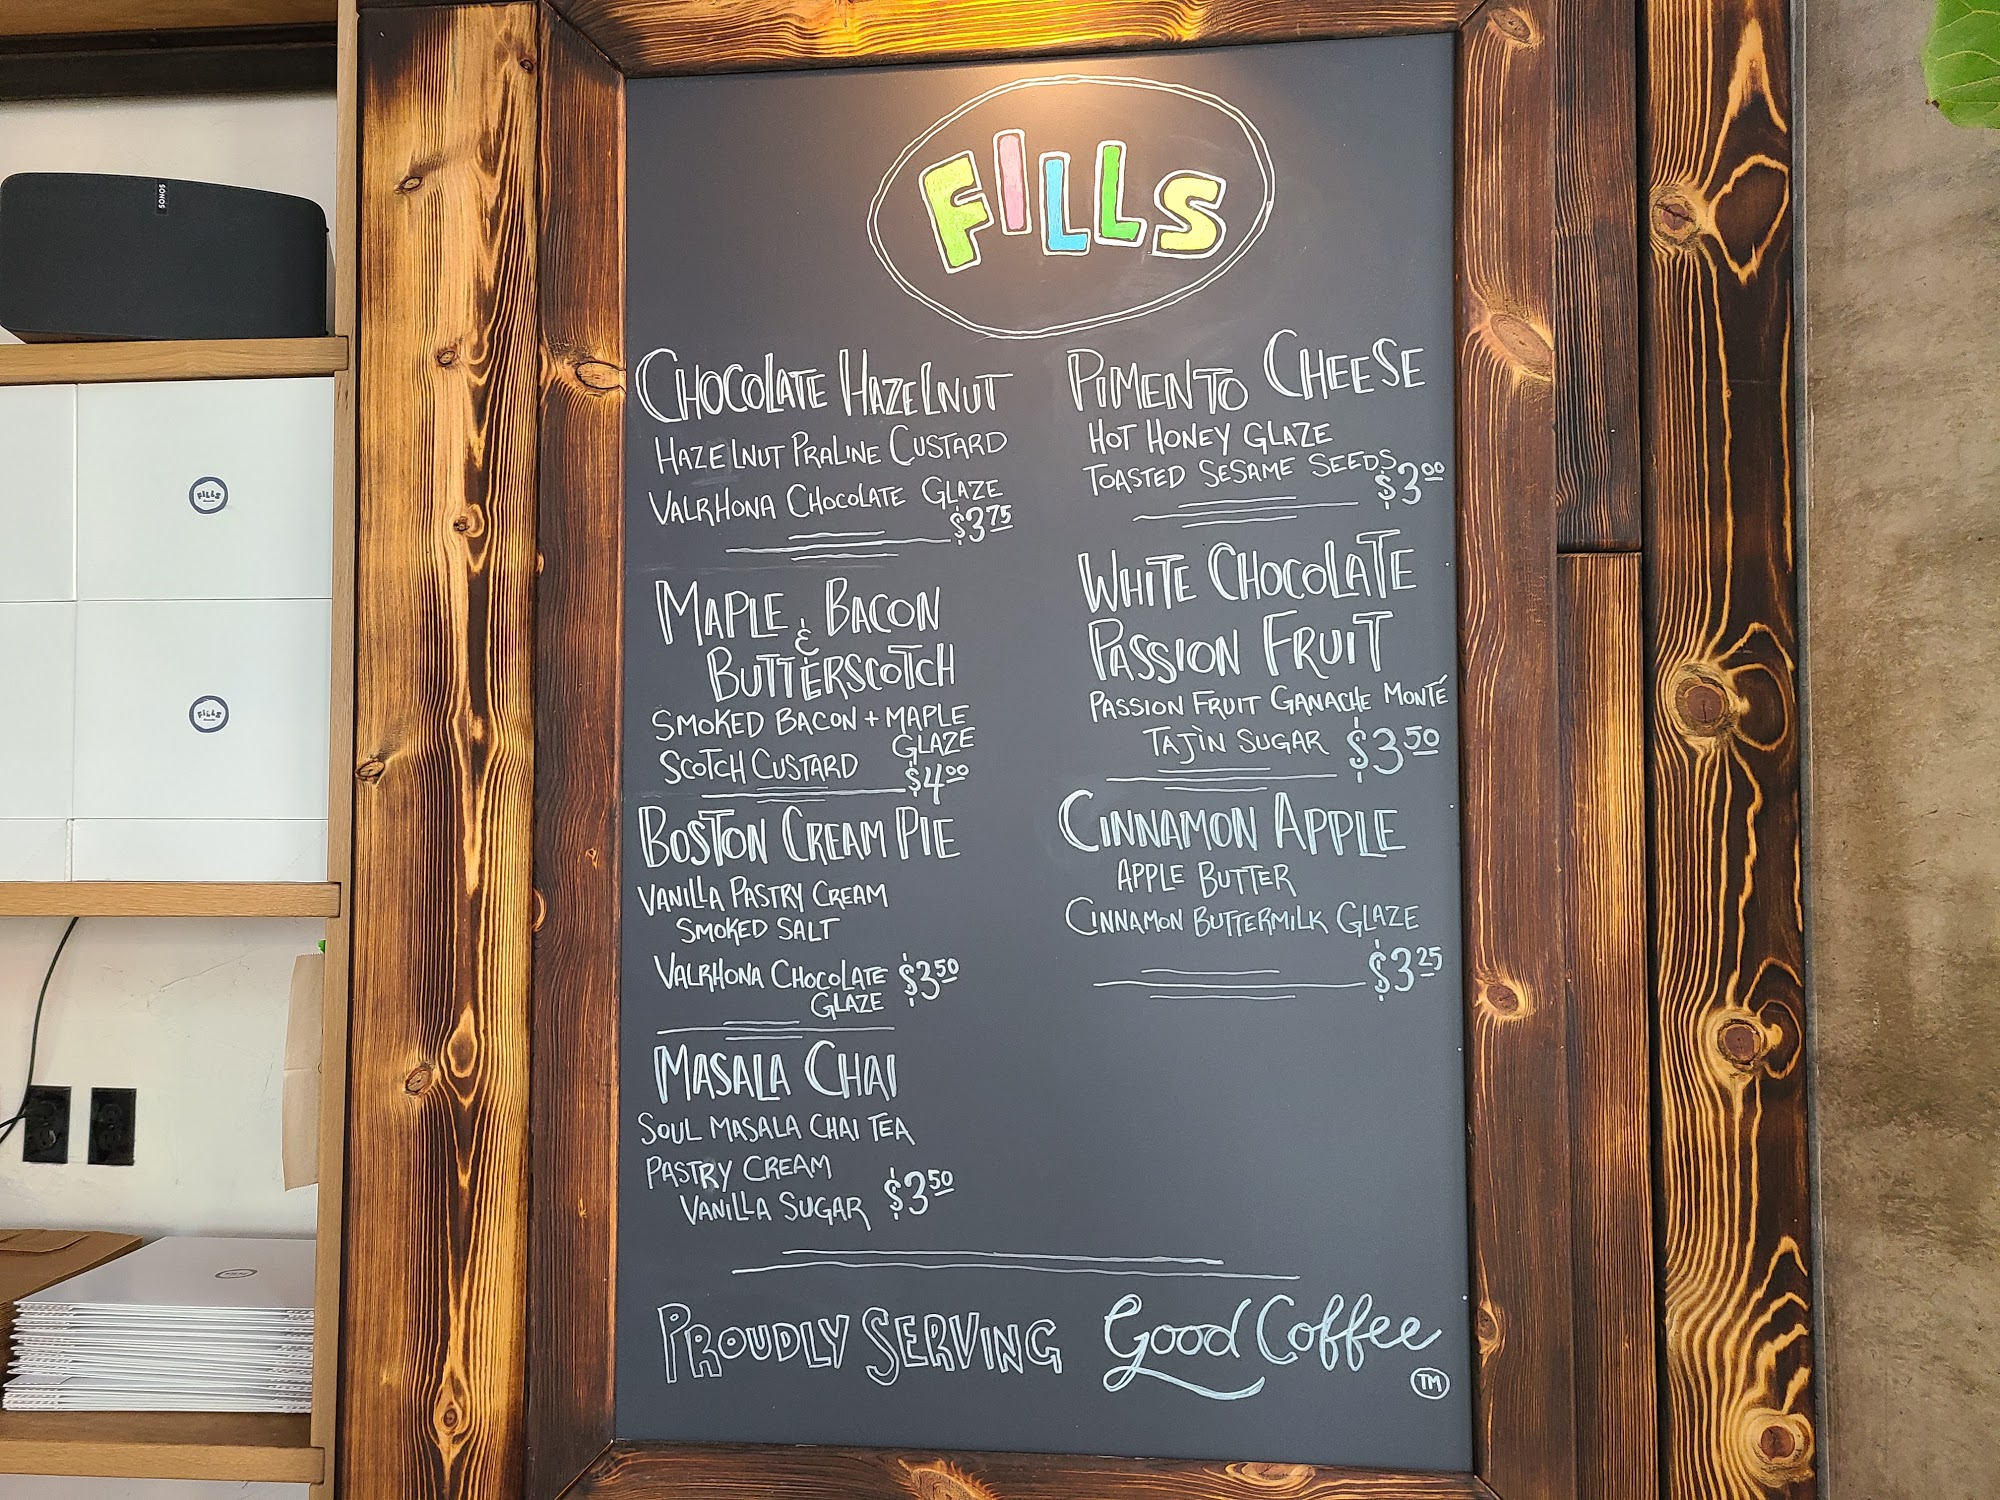 FILLS
CHOCOLATE HAZELNUT
HAZELNUT PRALINE CUSTARD
VALRHONA CHOCOLATE GLAZE
$3.75
MAPLE & BACON
BUTTERSCOTCH
SMOKED BACON + MAPLE
GLAZE
SCOTCH CUSTARD
$4.00
BOSTON CREAM PIE
VANILLA PASTRY CREAM
SMOKED SALT
VALRHONA CHOCOLATE $3.50
GLAZE
MASALA CHAI
SOUL MASALA CHAI TEA
PASTRY CREAM
VANILLA SUGAR $3.50
PIMENTO CHEESE
HOT HONEY GLAZE
TOASTED SESAME SEEDS
$3.00
WHITE CHOCOLATE
PASSION FRUIT
PASSION FRUIT GANACHE MONTÉ
TAJÌN SUGAR $3.50
CINNAMON APPLE
APPLE BUTTER
CINNAMON BUTTERMILK GLAZE
$3.25
PROUDLY SERVING Good Coffee
TM
SONOS
FILLS
FILLS